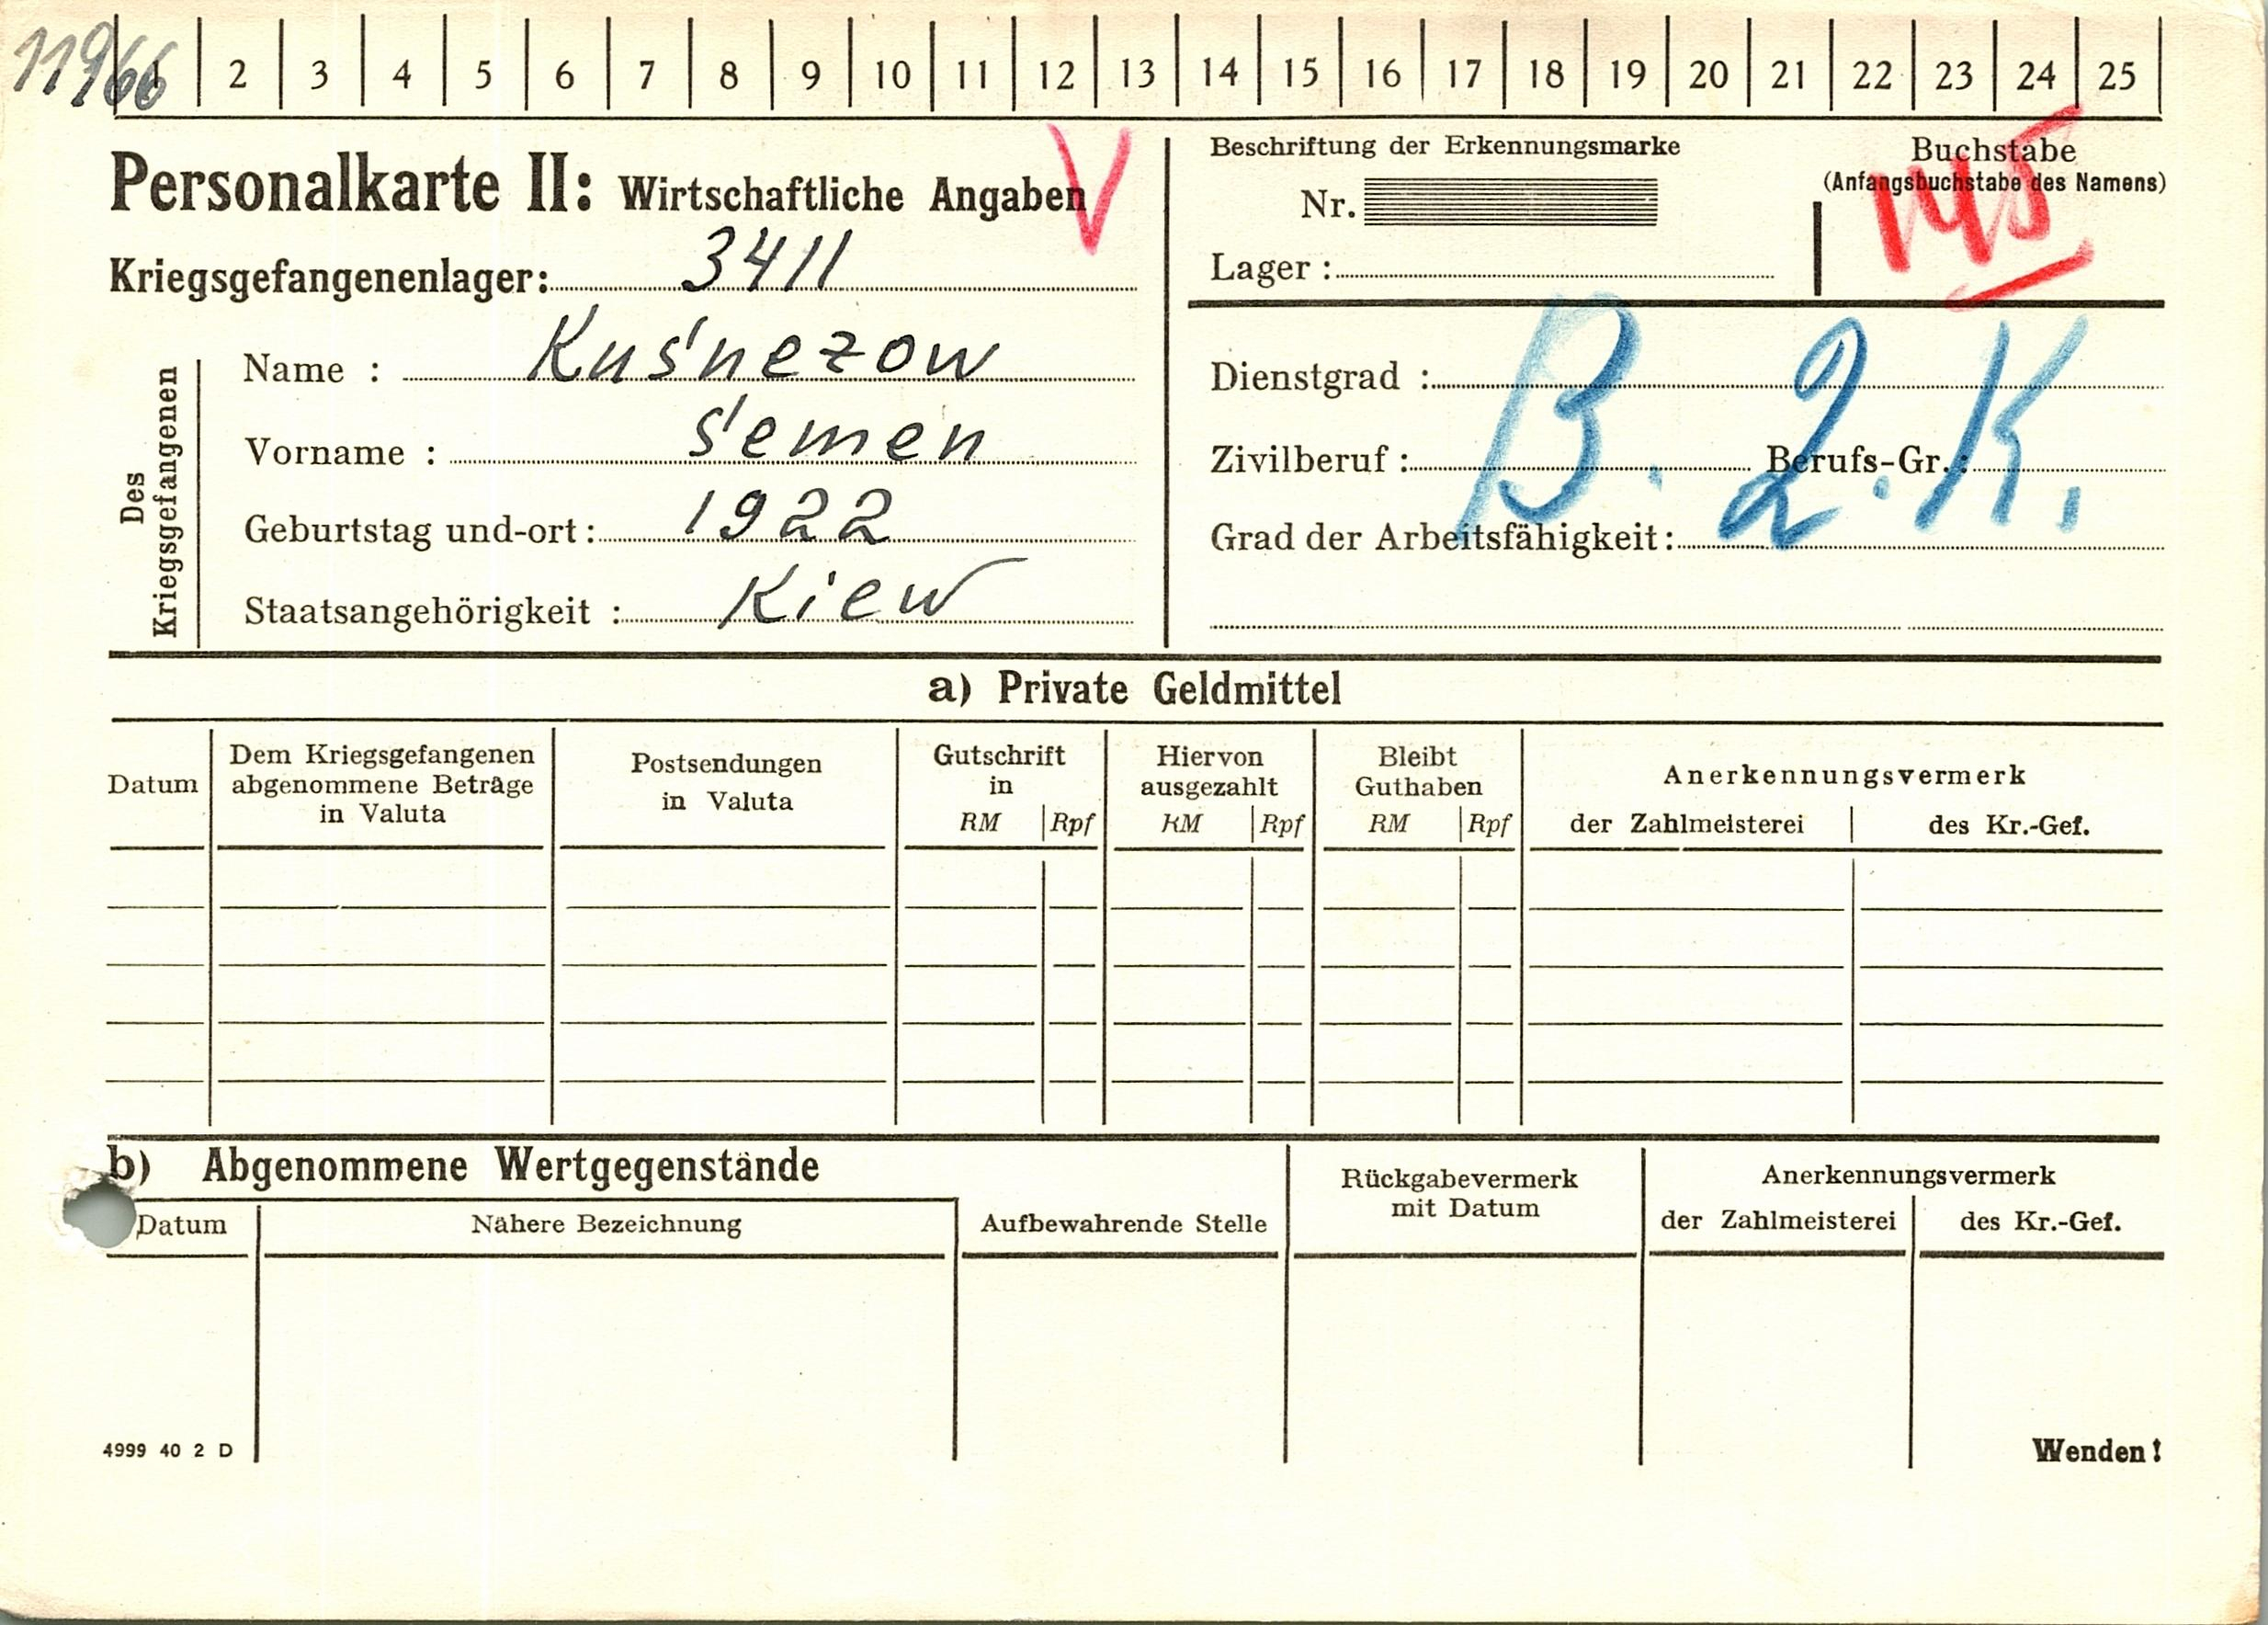 11966
1 2 3 4 5 6 7 8 9 10 11 12 13 14 15 16 17 18 19 20 21 22 23 24 25
Personalkarte II: Wirtschaftliche Angaben V
Beschriftung der Erkennungsmarke
Nr.
Lager :
Buchstabe
(Anfangsbuchstabe des Namens)
145
Kriegsgefangenenlager: 3411
Des
Kriegsgefangenen
Name : Kuśnezow
Vorname : Śemen
Geburtstag und-ort: 1922
Staatsangehörigkeit : Kiew
Dienstgrad :
Zivilberuf : Berufs-Gr. :
Grad der Arbeitsfähigkeit:
B. 2. K.
a) Private Geldmittel
Datum
Dem Kriegsgefangenen
abgenommene Beträge
in Valuta
Postsendungen
in Valuta
Gutschrift
in
RM Rpf
Hiervon
ausgezahlt
RM Rpf
Bleibt
Guthaben
RM Rpf
Anerkennungsvermerk
der Zahlmeisterei des Kr.-Gef.
b) Abgenommene Wertgegenstände
Datum
Nähere Bezeichnung
Aufbewahrende Stelle
Rückgabevermerk
mit Datum
Anerkennungsvermerk
der Zahlmeisterei des Kr.-Gef.
4999 40 2 D
Wenden!